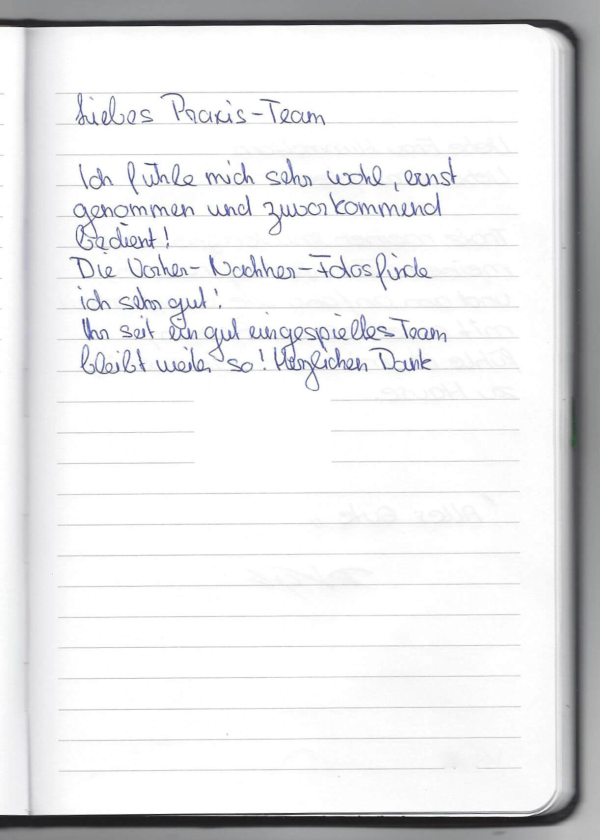 Liebes Praxis-Team
Ich fühle mich sehr wohl, ernst
genommen und zuvorkommend
bedient!
Die Vorher-Nachher-Fotos finde
ich sehr gut!
Ihr seit ein gut eingespieltes Team
bleibt weiter so! Herzlichen Dank